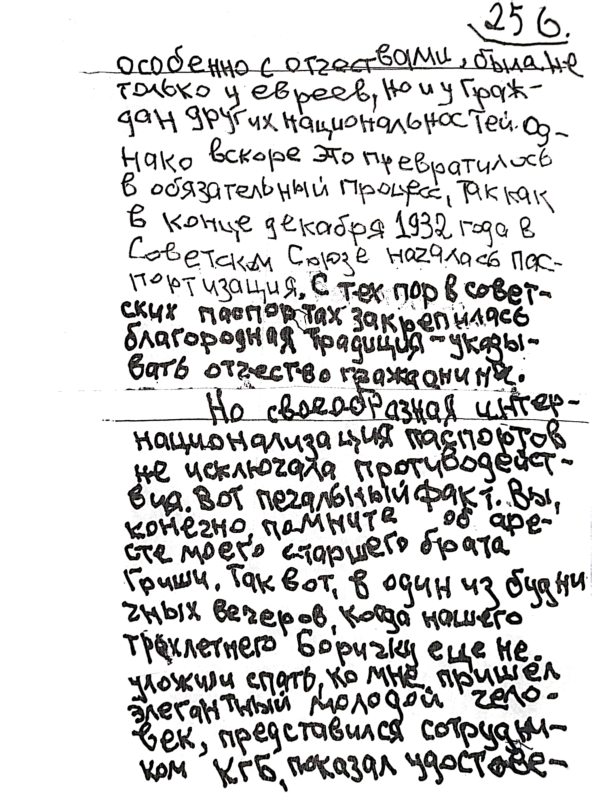 256.
особенно с отчествами, была не
только у евреев, но и у граж-
дан других национальностей. Од-
нако вскоре это превратилось
в обязательный процесс, так как
в конце декабря 1932 года в
Советском Союзе началась пас-
портизация. С тех пор в совет-
ских паспортах закрепилась
благородная традиция - указы-
вать отчество гражданина.
Но своеобразная интер-
национализация паспортов
не исключала противодейст-
вия. Вот печальный факт. Вы,
конечно, помните об аре-
сте моего старшего брата
Гриши. Так вот, в один из будни
чных вечеров, когда нашего
трехлетнего Боричку еще не
уложили спать, ко мне пришел
элегантный молодой чело-
век, представился сотрудни-
ком КГБ, показал удостове-